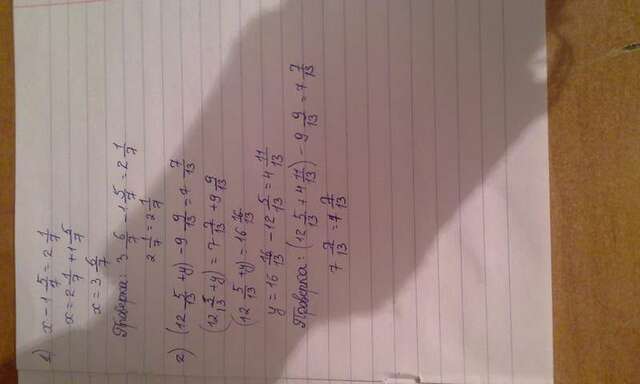 1) x - 1 5/7 = 2 1/7
x = 2 1/7 + 1 5/7
x = 3 6/7
Проверка: 3 6/7 - 1 5/7 = 2 1/7
2 1/7 = 2 1/7
2) (12 5/13 + y) - 9 9/13 = 7 7/13
(12 5/13 + y) = 7 7/13 + 9 9/13
(12 5/13 + y) = 16 16/13
y = 16 16/13 - 12 5/13 = 4 11/13
Проверка: (12 5/13 + 4 11/13) - 9 9/13 = 7 7/13
7 7/13 = 7 7/13